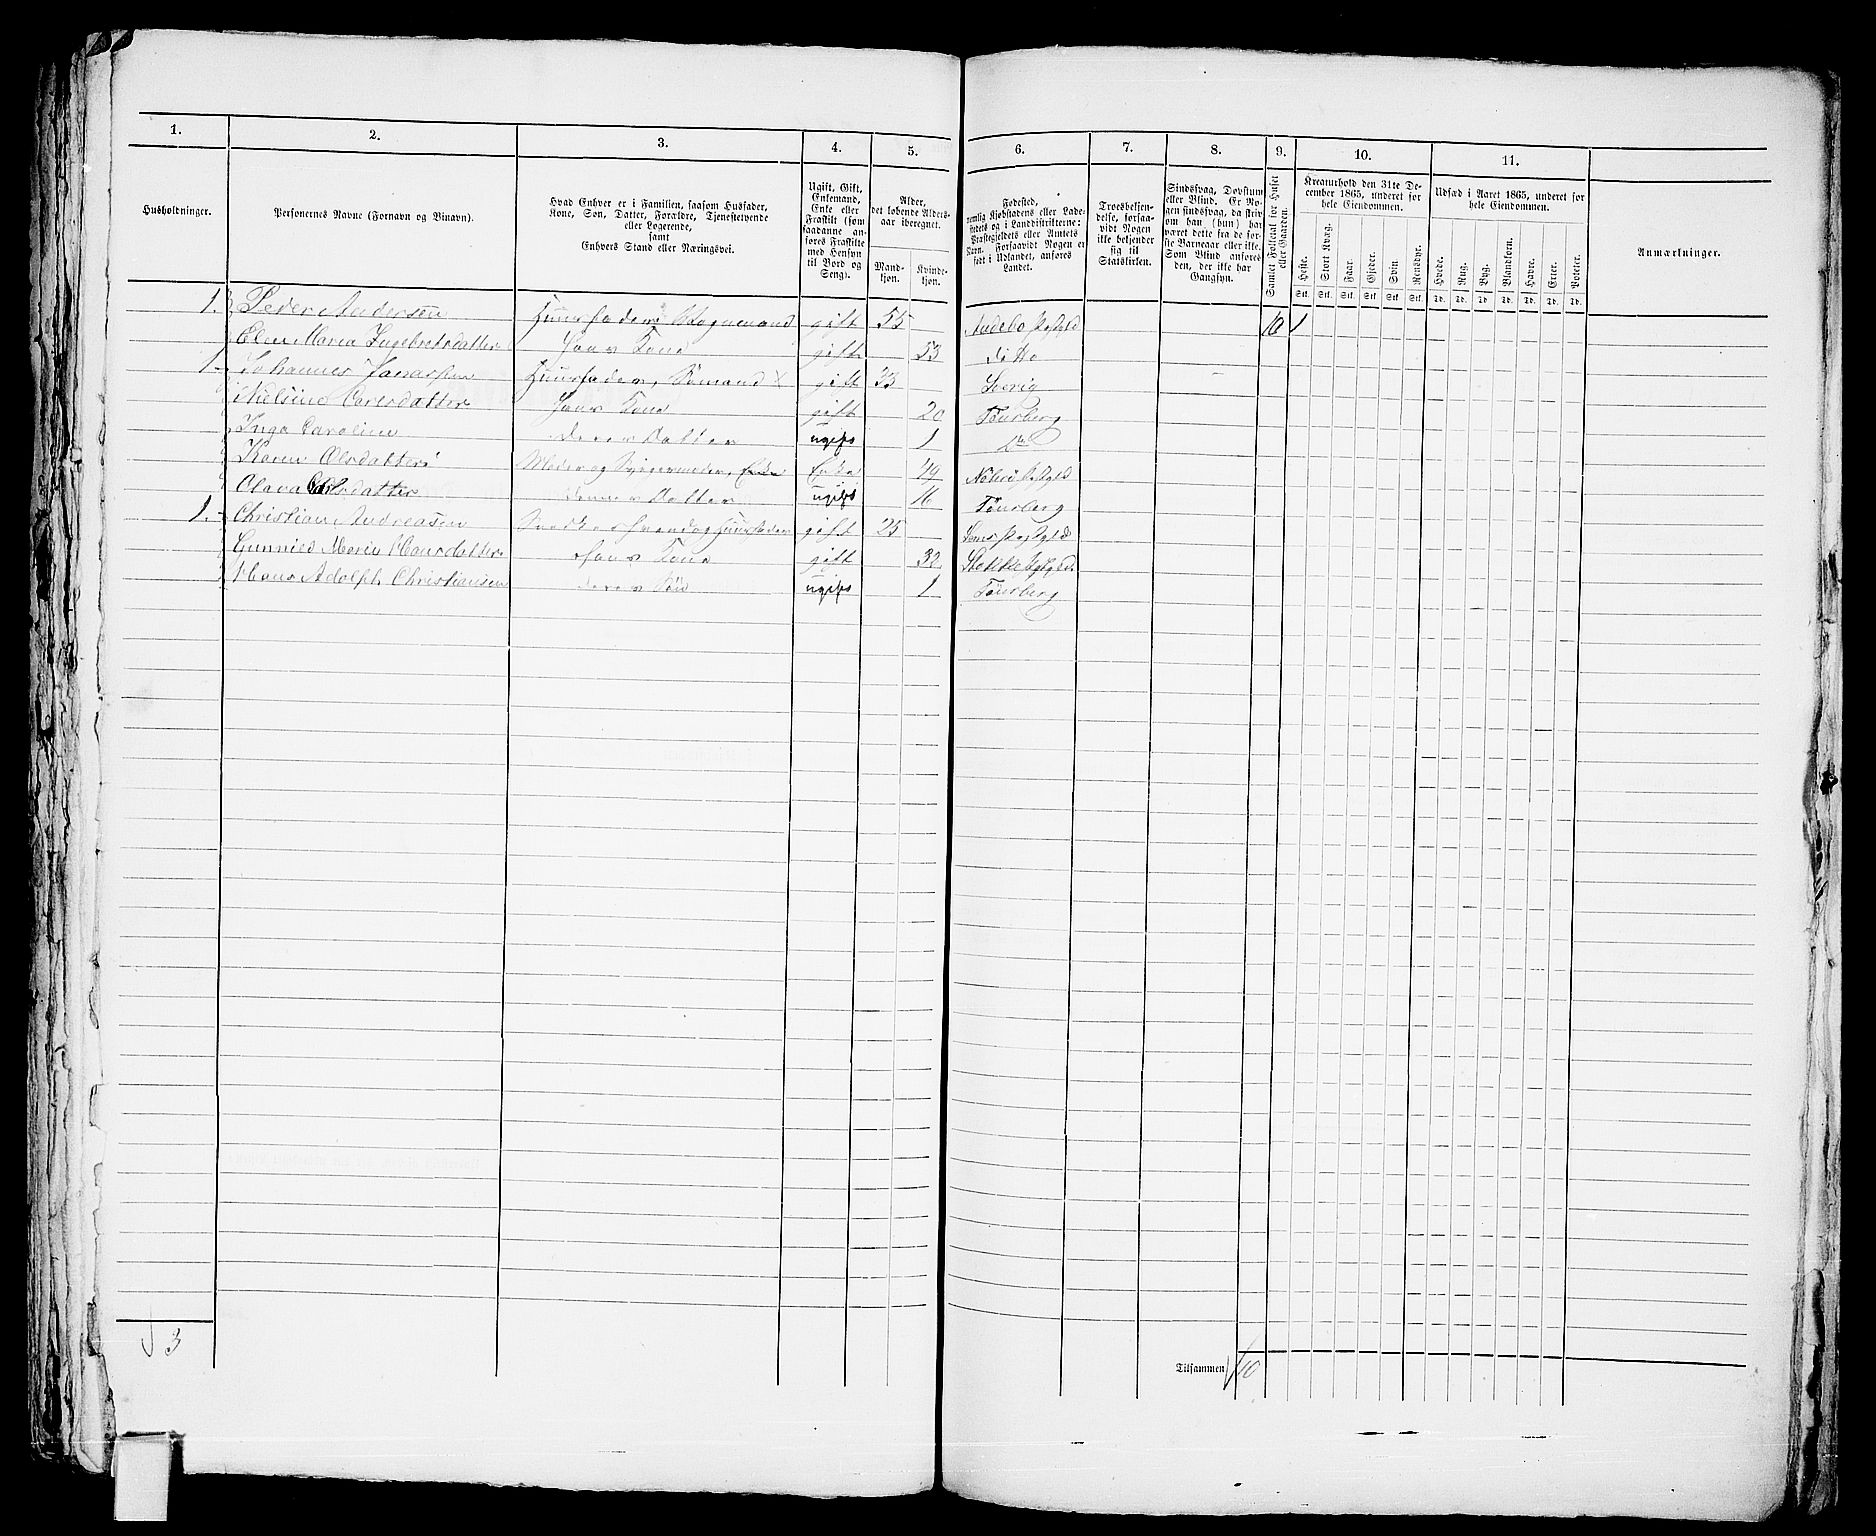 1. 2. 3. 4. 5. 6. 7. 8. 9. 10. 11.
Husholdninger.
Personernes Navne (Fornavn og Binavn).
Hvad Enhver er i Familien, saasom Husfader,
Kone, Søn, Datter, Forældre, Tjenestetyende
eller Logerende,
samt
Enhvers Stand eller Næringsvei.
Ugift, Gift,
Enkemand,
Enke eller
Fraskilt (som
saadanne an-
føres Fraskilte
med Hensyn
til Bord og
Seng).
Alder,
det løbende Alders-
aar iberegnet.
Mand-
kjøn.
Kvinde-
kjøn.
Fødested,
nemlig Kjøbstadens eller Lade-
stedets og i Landdistrikterne:
Præstegjeldets eller Amtets
Navn. Forsaavidt Nogen er
født i Udlandet, anføres
Landet.
Troesbekjen-
delse, forsaa-
vidt Nogen
ikke bekjender
sig til
Statskirken.
Sindssvag, Døvstum
eller Blind. Er No-
gen sindssvag, da skriv
om han (hun) har
været dette fra de før-
ste Barneaar eller ikke.
Som Blind anføres
den, der ikke har
Gangsyn.
Samlet Folketal for Huset
eller Gaarden.
Kreaturhold den 31te De-
cember 1865, underet for
hele Eiendommen.
Heste. Stort Kvæg. Faar. Gjeder. Svin. Rensdyr.
Stk. Stk. Stk. Stk. Stk. Stk.
Udsæd i Aaret 1865, underet for
hele Eiendommen.
Hvede. Rug. Byg. Blandkorn. Havre. Erter. Poteter.
Td. Td. Td. Td. Td. Td. Td.
Anmærkninger.
1. Peder Andersen Huusfader, Vognmand gift 55 Andebo Præstgjld 10 1
Elen Maria Ingebretsdatter Hans Kone gift 53 ditto
1 Johannes Huusfader, Sømand X gift 23
Nielsine Carlsdatter Hans Kone gift 20 Tønsberg
Inga Caroline deres Datter ugift 1
Karen Olsdatter Moder og Svigermoder, Enke Enke 49 Nøterø Præstgjld
Clara Olsdatter Datter ugift 16 Tønsberg
1. Christian Andreasen og Huusfader gift 25 Sems Præstgjld
Gunnild Marie Hansdatter Hans Kone gift 32 Præstgjeld
Hans Adolph Christiansen deres Søn ugift 1 Tønsberg
3
Tilsammen 10